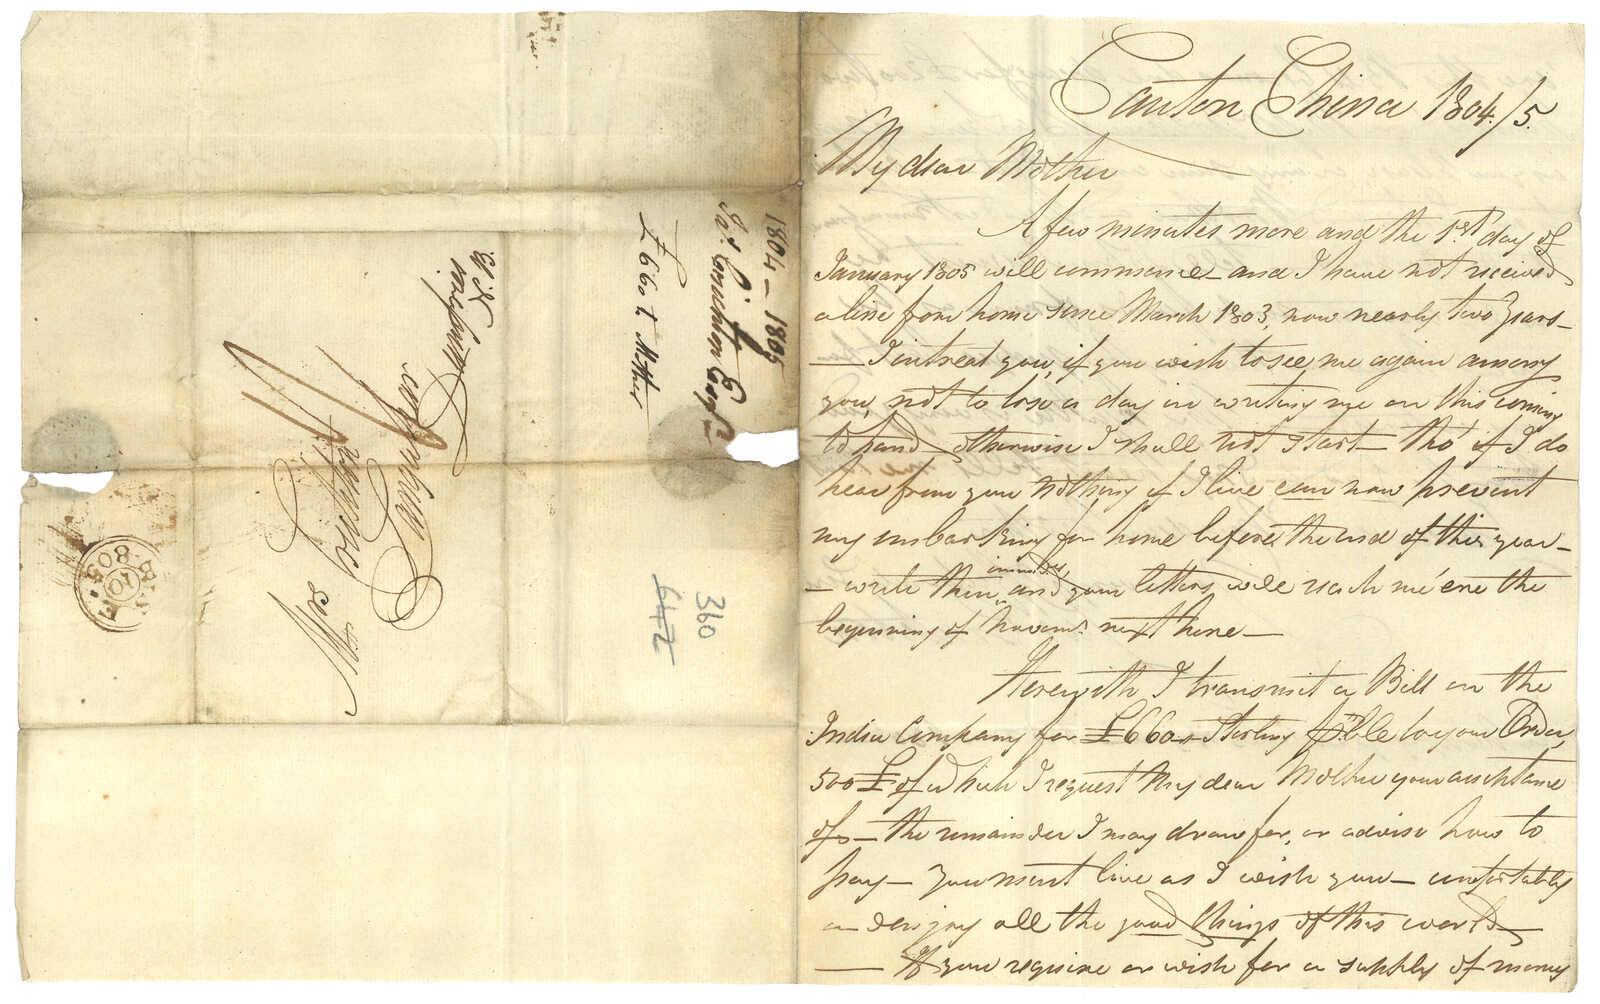 Canton China 1804./5.
My dear Mother
A few minutes more and the 1st day of
January 1805 will commence - and I have not received
a line from home since March 1803, now nearly two Years -
- I intreat you, if you wish to see me again among
you, not to lose a day in writing me on this coming
to hand, otherwise I shall not start - tho' if I do
hear from you nothing if I live can now prevent
my embarking for home before the end of this year -
- write then, and your letters will reach me 'ere the
beginning of Novemr. next here -
Herewith I transmit a Bill on the
India Company for £660 Sterling to your Order,
500 £ of which I request My dear Mother your acceptance
of - the remainder I may draw for, or advise how to
pay - You must live as I wish you - comfortably
and enjoy all the good things of this world -
- If you require or wish for a supply of money
1804 - 1805
Esqr
£660 t. Mother
Mrs Couchton
Langholm
N.B.
360
642
805